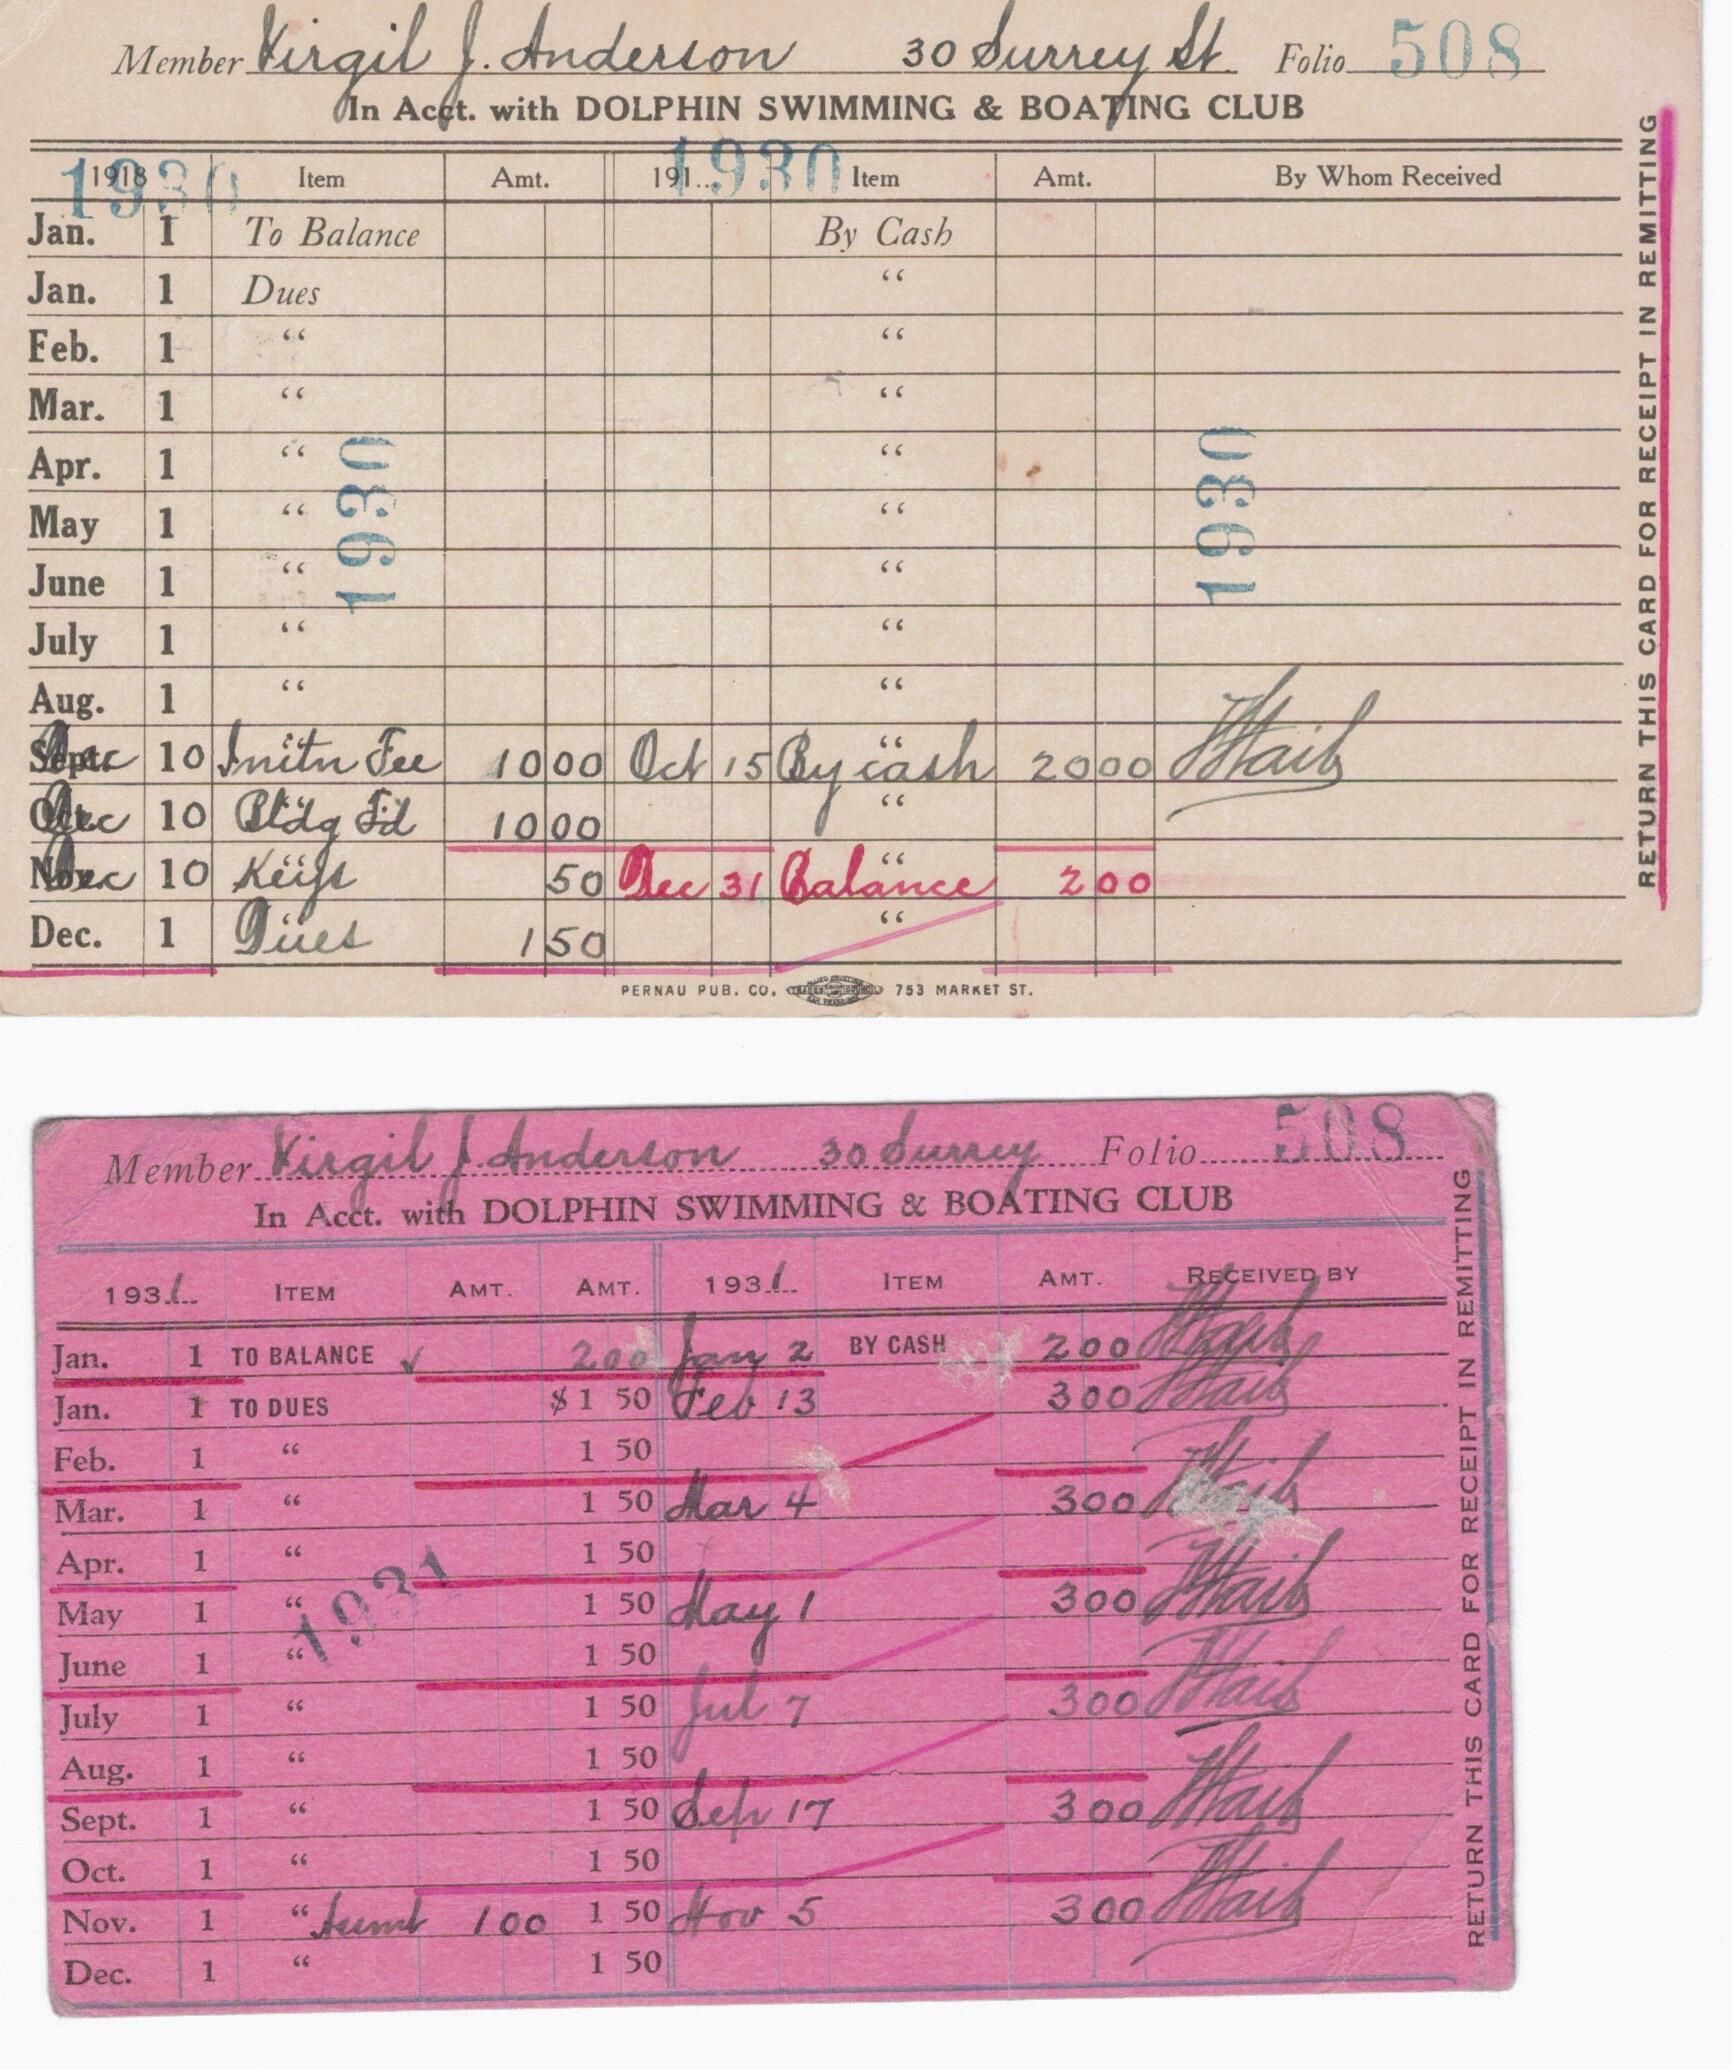 Member Virgil J. Anderson 30 Surrey St. Folio 508
In Acct. with DOLPHIN SWIMMING & BOATING CLUB
1918 1930 Item Amt. 191.. 1930 Item Amt. By Whom Received
Jan. 1 To Balance By Cash
Jan. 1 Dues “
Feb. 1 “ “
Mar. 1 “ “
Apr. 1 “ “
May 1 “ “
June 1 “ “
July 1 “ “
Aug. 1 “ “
1930
1930
Sept. Dec 10 Initn Fee 10 00 Oct 15 By cash “ 20 00
Oct. Dec 10 Bldg Fd 10 00 “
Nov. Dec 10 Keys 50 Dec 31 Balance “ 2 00
Dec. 1 Dues 1 50 “
PERNAU PUB. CO. 753 MARKET ST.
RETURN THIS CARD FOR RECEIPT IN REMITTING
Member Virgil J. Anderson 30 Surrey Folio 508
In Acct. with DOLPHIN SWIMMING & BOATING CLUB
1931 ITEM AMT. AMT. 1931 ITEM AMT. RECEIVED BY
Jan. 1 TO BALANCE ✓ 2 00 Jan 2 BY CASH 2 00
Jan. 1 TO DUES $1 50 Feb 13 3 00
Feb. 1 “ 1 50
Mar. 1 “ 1 50 Mar 4 3 00
Apr. 1 “ 1 50
May 1 “ 1 50 May 1 3 00
June 1 “ 1 50
July 1 “ 1 50 Jul 7 3 00
Aug. 1 “ 1 50
Sept. 1 “ 1 50 Sep 17 3 00
Oct. 1 “ 1 50
Nov. 1 “ 1 00 1 50 Nov 5 3 00
Dec. 1 “ 1 50
1931
RETURN THIS CARD FOR RECEIPT IN REMITTING